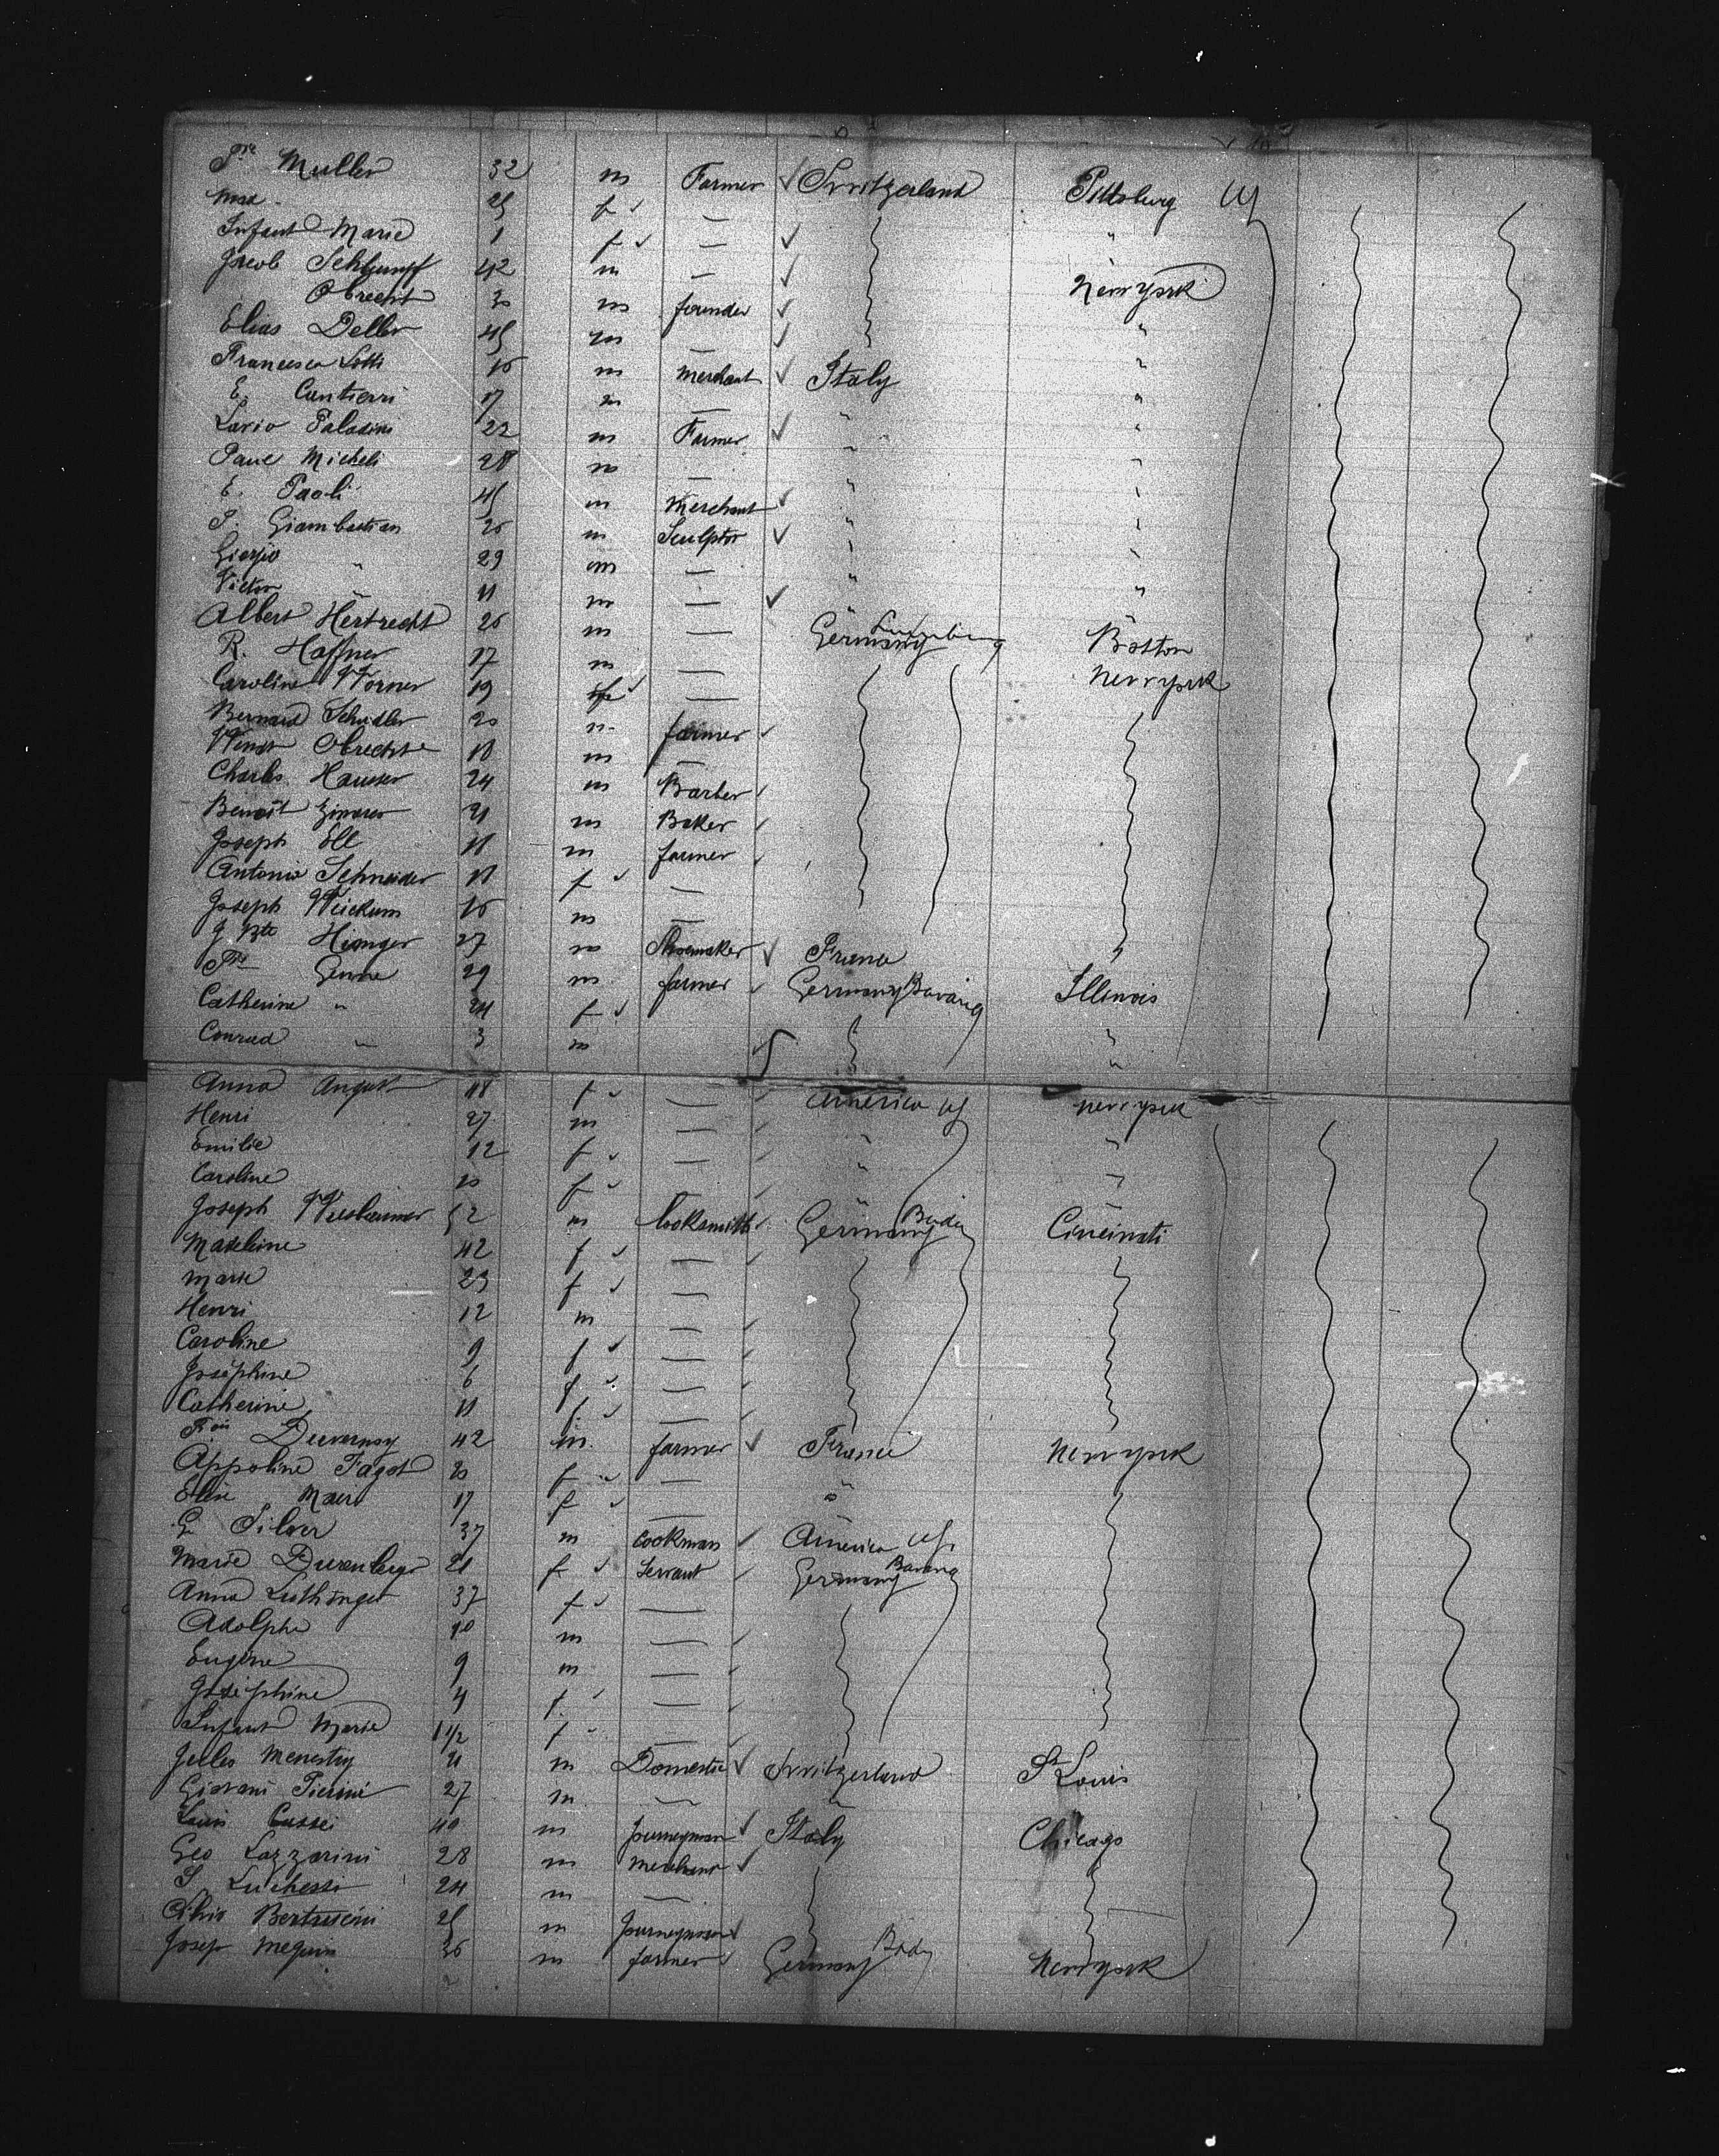 Pre Muller 32 m Farmer Switzerland Pittsburg US
Mad 25 f — "
Infant Marie 1 f —
Jacob Schlumpf 42 m — New york
Obrecht 30 m founder "
Elias Deller 45 m — "
Francesco Lotti 16 m merchant Italy "
E. Contierri 17 m — " "
Lario Paladini 22 m Farmer " "
Paul Micheli 28 m — " "
E. Paoli 45 m Merchant " "
P. Giambastian 26 m Sculptor " "
Giorgio " 29 m — " "
Victor " 11 m — "
Albert Hertrecht 26 m — Germany Boston
R. Haffner 17 m — New york
Caroline Worner 19 f —
Bernard Schidler 20 m farmer
Wendt Obrecht 18 m —
Charles Hauser 24 m Barber
Benoit 21 m Baker
Joseph Ell 18 m farmer
Antonia Schneider 18 f —
Joseph Weickum 16 m —
J Bte Hianger 27 m Shoemaker France
Pre Genne 29 m farmer Germany Bavaria Illinois
Catherine " 24 f "
Conrad " 3 m "
Anna August 48 f — America US new york
Henri 27 m — " "
Emilie 12 f — " "
Caroline 10 f — "
Joseph 52 m locksmith Germany Baden Cincinati
Madeleine 42 f —
Marie 23 f —
Henri 12 m —
Caroline 9 f —
Joséphine 6 f —
Catherine 11 f —
Fois Duvernoy 42 m farmer France New york
Appoline Fagot 20 f — "
Elise Maer 17 f —
G Silver 37 m cookman America US.
Marie Durenberger 21 f Servant Germany Bavaria
Anna Luthinger 37 f —
Adolphe 10 m —
Eugène 9 m —
Joséphine 4 f. —
Infant Marie 1 1/2 f —
Jules Menestry 21 m Domestic Switzerland St Louis
Giovani Pierini 27 m — "
Louis Cassei 40 m Journeyman Italy Chicago
Geo Lazzarini 28 m merchant
S Luchessi 24 m —
Silvio 25 m Journeyman
Josep Meguin 36 m farmer Germany Bade New york